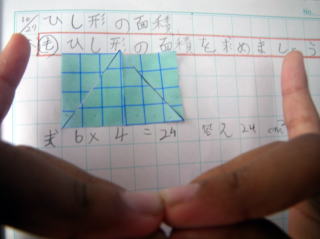 10/27 ひし形の面積
も ひし形の面積を求めましょう
式 6×4=24 答え 24 cm²